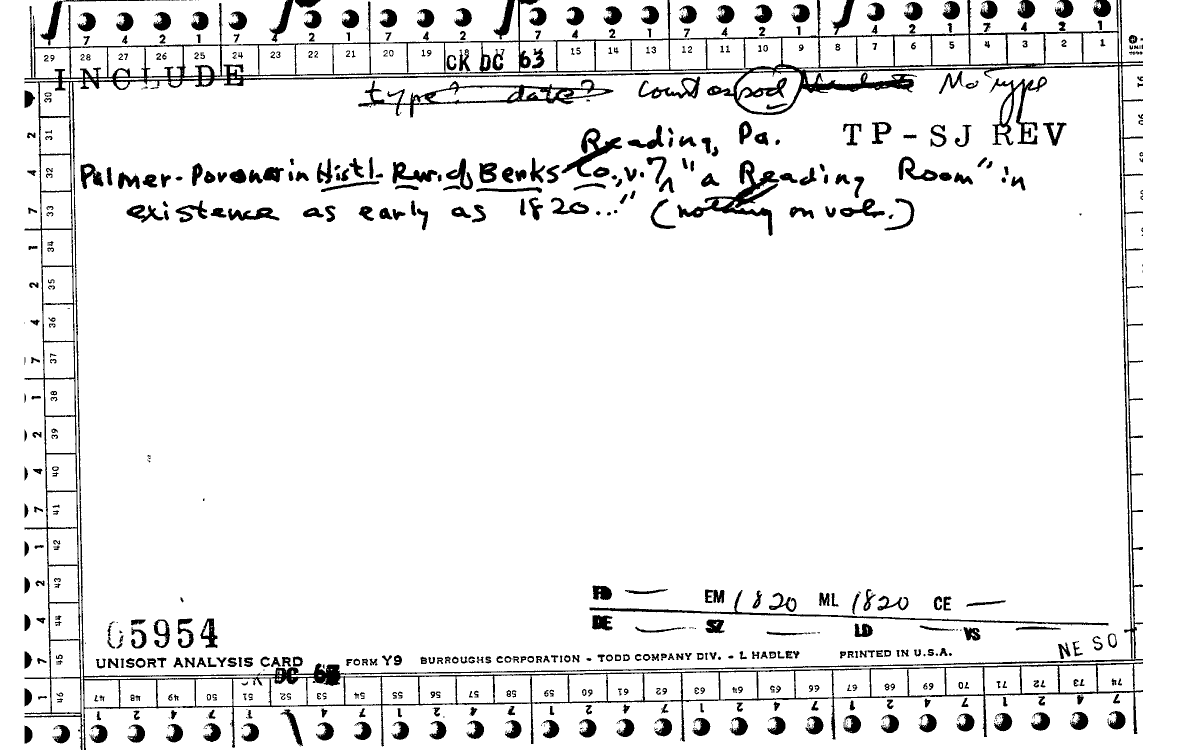 7 4 2 1 7 4 2 1 7 4 2 1 7 4 2 1 7 4 2 1 7 4 2 1 7 4 2 1
29 28 27 26 25 24 23 22 21 20 19 18 17 15 14 13 12 11 10 9 8 7 6 5 4 3 2 1
CK DC 63
INCLUDE
type? date? Count as soc No Type
Reading, Pa. TP-SJ REV
Palmer-Poroner in Histl. Rev. of Berks Co., v.7, "a Reading Room" in
existence as early as 1820..." (nothing on vols.)
30
2 31
4 32
7 33
1 34
2 35
4 36
7 37
1 38
2 39
4 40
7 41
1 42
2 43
4 44
7 45
1 46
FD — EM 1820 ML 1820 CE —
DE — SZ — LD — VS —
NE SO
05954
UNISORT ANALYSIS CARD FORM Y9 BURROUGHS CORPORATION - TODD COMPANY DIV. - L HADLEY PRINTED IN U.S.A.
CK DC 63
47 48 49 50 51 52 53 54 55 56 57 58 59 60 61 62 63 64 65 66 67 68 69 70 71 72 73 74
1 2 4 7 1 2 4 7 1 2 4 7 1 2 4 7 1 2 4 7 1 2 4 7 1 2 4 7